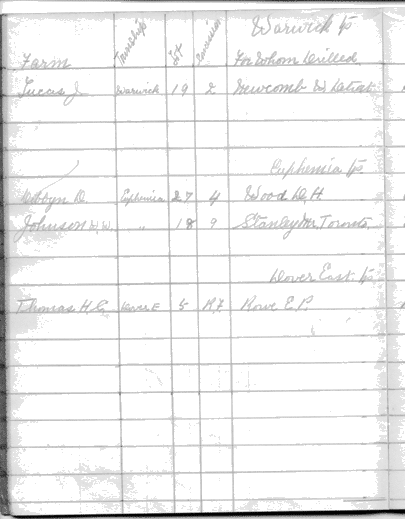 Warwick Tp
Farm Township Lot Concession For Whom Drilled
Lucas J Warwick 19 2 Newcomb W Detroit
Euphemia Tp
D. Euphemia 27 4 Wood D. H.
Johnson W. W. " 18 9 Stanley Toronto.
Dover East Tp
Thomas H. C. Dover E 5 Rowe E. P.